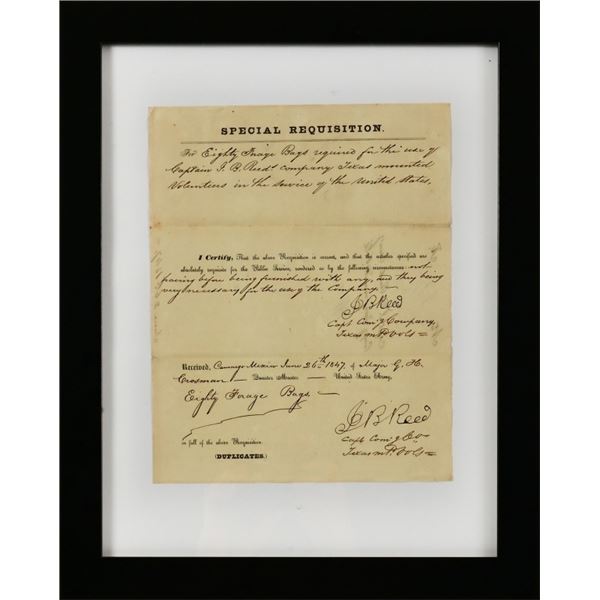 SPECIAL REQUISITION.
For Eighty Forage Bags required for the use of
Captain J. B. Reeds company Texas mounted
Volunteers in the service of the United States,
I Certify, That the above Requisition is correct, and that the articles specified are
absolutely requisite for the Public Service, rendered so by the following circumstances: not
having before been furnished with any, and they being
very necessary for the use of the Company.
J B Reed
Capt Com'g Company,
Texas mtd Vols
Received, Camargo Mexico June 26th 1847, of Major G. H.
Crosman Quarter Master United States Army,
Eighty Forage Bags,
in full of the above Requisition.
(DUPLICATES.)
J B Reed
Capt Com'g Co
Texas mtd Vols